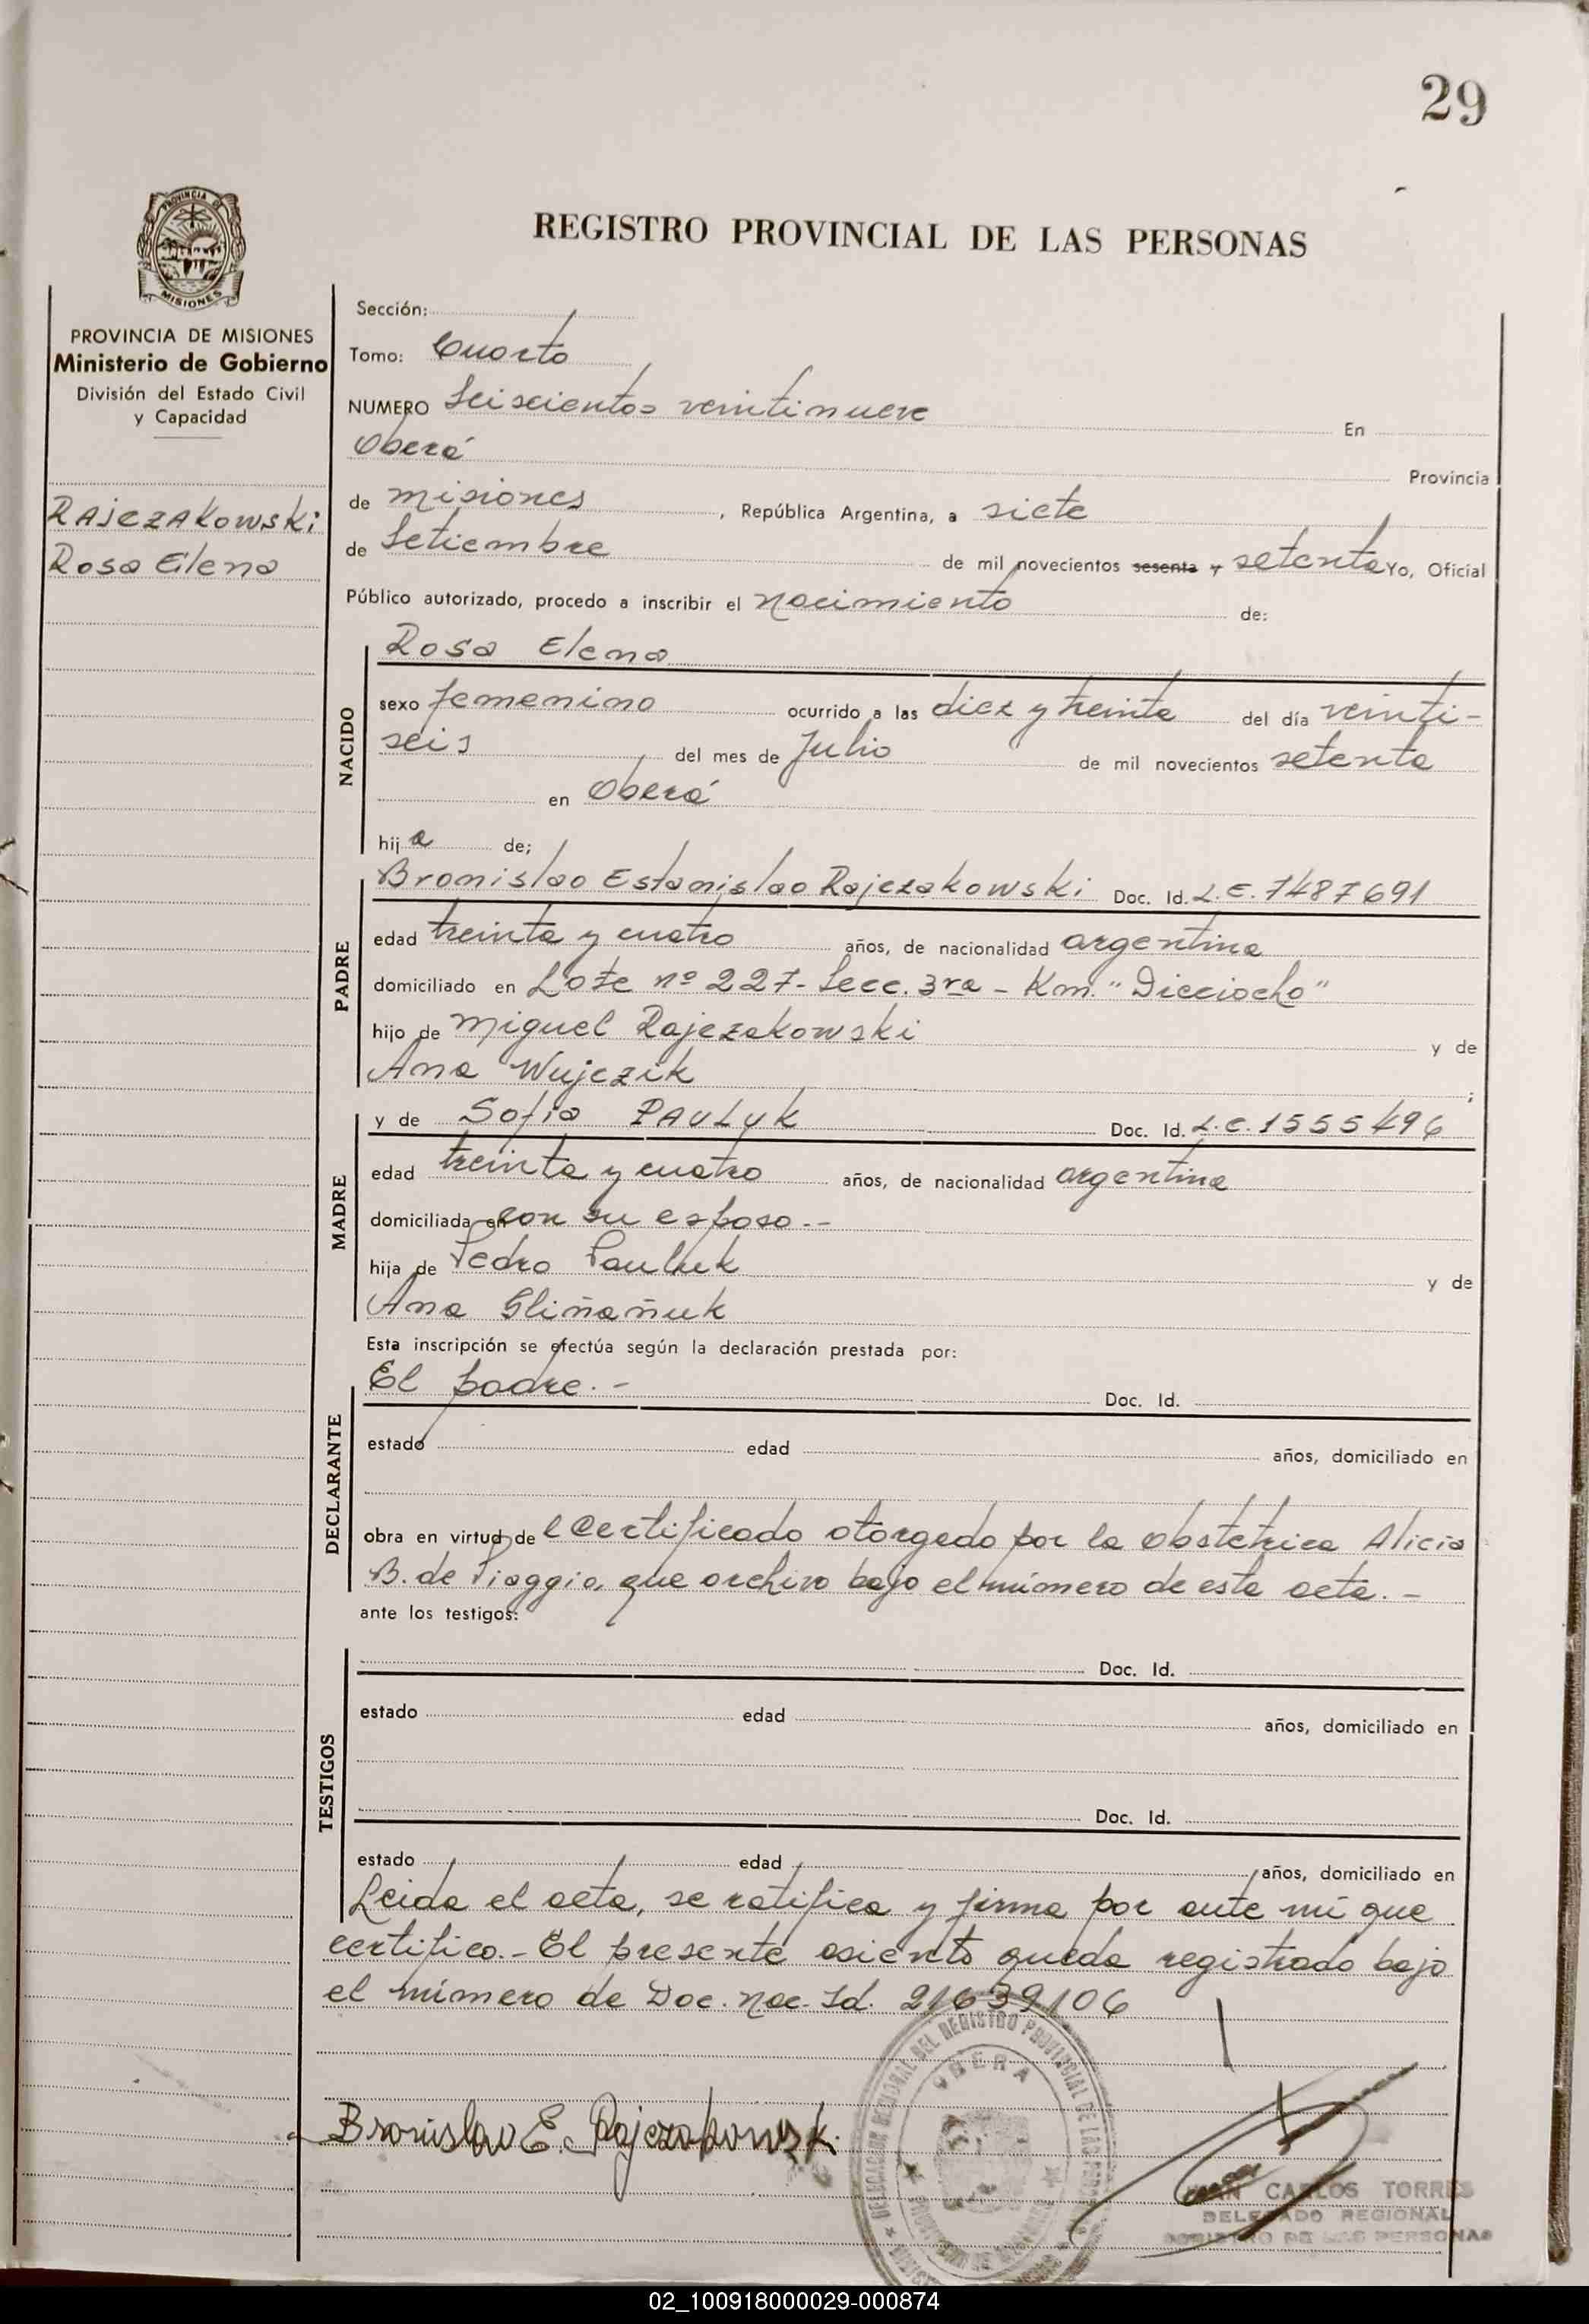 29
PROVINCIA DE
MISIONES
REGISTRO PROVINCIAL DE LAS PERSONAS
PROVINCIA DE MISIONES
Ministerio de Gobierno
División del Estado Civil
y Capacidad
RAJCZAKOWSKI
Rosa Elena
Sección:
Tomo: Cuarto
NUMERO Seiscientos veintinueve En
Oberá Provincia
de Misiones, República Argentina, a siete
de Setiembre de mil novecientos sesenta y setenta Yo, Oficial
Público autorizado, procedo a inscribir el nacimiento de:
NACIDO
Rosa Elena
sexo femenino ocurrido a las diez y treinta del día veinti-
seis del mes de Julio de mil novecientos setenta
en Oberá
hija de;
PADRE
Bronislao Estanislao Rajczakowski Doc. Id. L.E. 7487691
edad treinta y cuatro años, de nacionalidad argentina
domiciliado en Lote nº 227- Secc. 3ra - Km. "Dieciocho"
hijo de Miguel Rajczakowski y de
Ana Wujczik ;
MADRE
y de Sofia PAULUK Doc. Id. L.C. 1555496
edad treinta y cuatro años, de nacionalidad argentina
domiciliada en con su esposo.--
hija de Pedro Pauluk y de
Ana Gliñañuk
Esta inscripción se efectúa según la declaración prestada por:
DECLARANTE
El padre.- Doc. Id.
estado edad años, domiciliado en
obra en virtud de l certificado otorgado por la obstetrica Alicia
B. de Piaggio, que archivo bajo el número de esta acta.-
ante los testigos:
TESTIGOS
Doc. Id.
estado edad años, domiciliado en
Doc. Id.
estado edad años, domiciliado en
Leida el acta, se ratifica y firma por ante mi que
certifico.- El presente asiento queda registrado bajo
el número de Doc. Nac. Id. 21639106
DELEGACION REGIONAL DEL REGISTRO PROVINCIAL DE LAS
OBERA
Bronislao E. Rajczakowski
JUAN CARLOS TORRES
DELEGADO REGIONAL
REGISTRO DE LAS PERSONAS
02_100918000029-000874